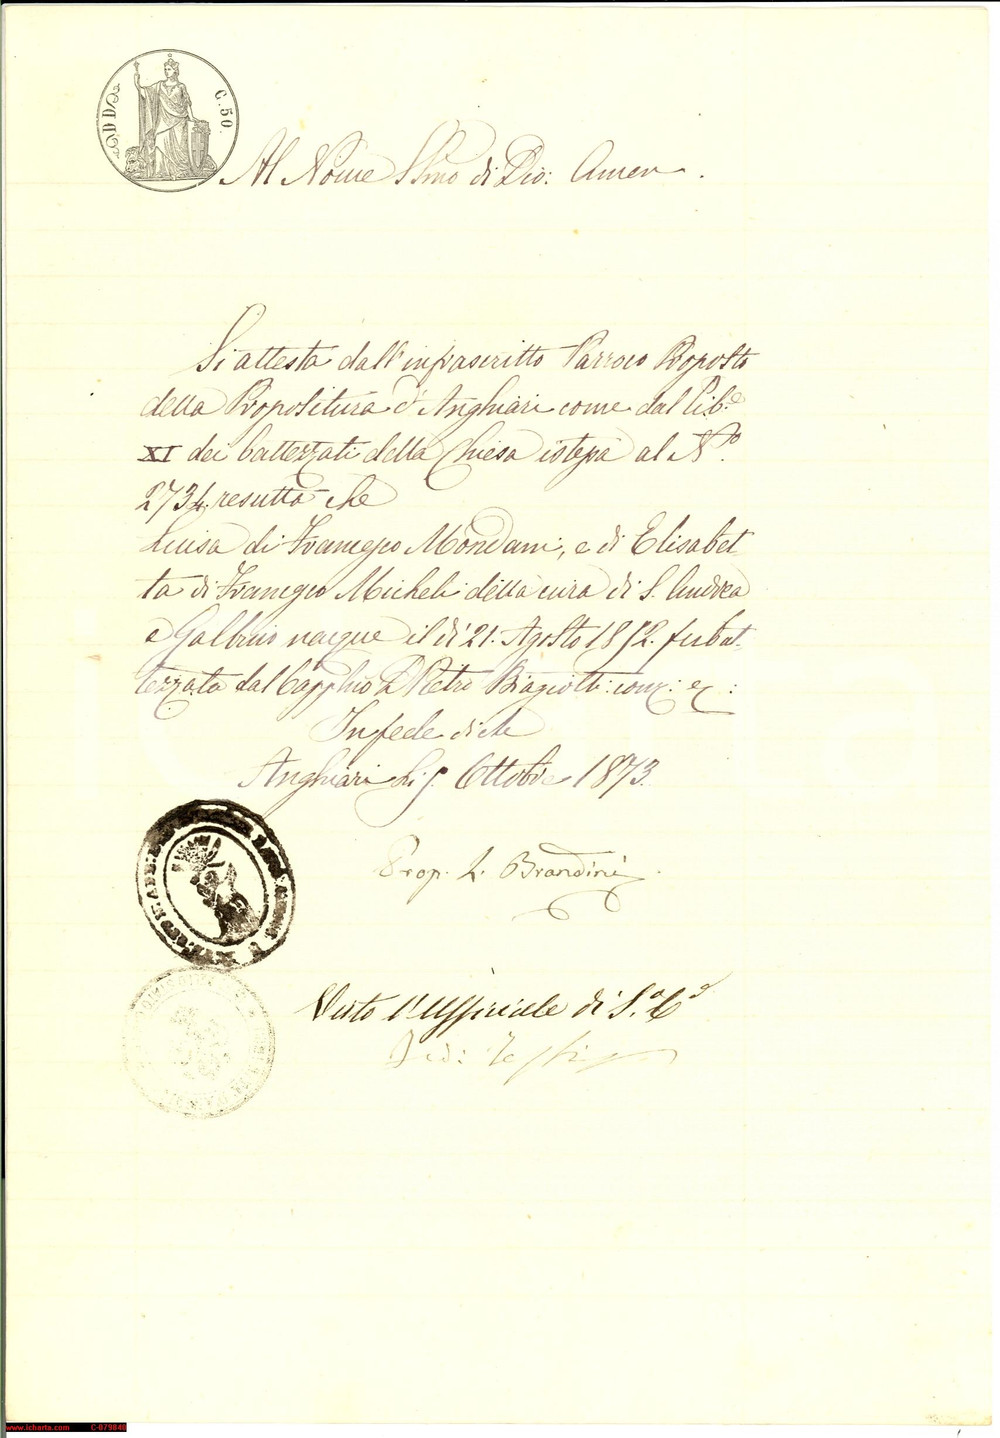 C. 50.
Al Nome SSmo di Dio: Amen.
Si attesta dall'infrascritto Parroco Proposto
della Propositura d'Anghiari come dal Lib.o
XI dei battezzati della Chiesa istessa al N.o
2734. resulta che
Luisa di Francesco Mondani, e di Elisabet-
ta di Francesco Micheli della cura di S. Andrea
a Galbino nacque il dì 21. Agosto 1852. fu bat-
tezzata dal Capp.no D Pietro Biagiotti: conj: ec:
In fede di che
Anghiari li 5. Ottobre 1873.
Prop. L. Brandini
Visto l'Uffiziale di S.o C.e
www.icharta.com C-079840